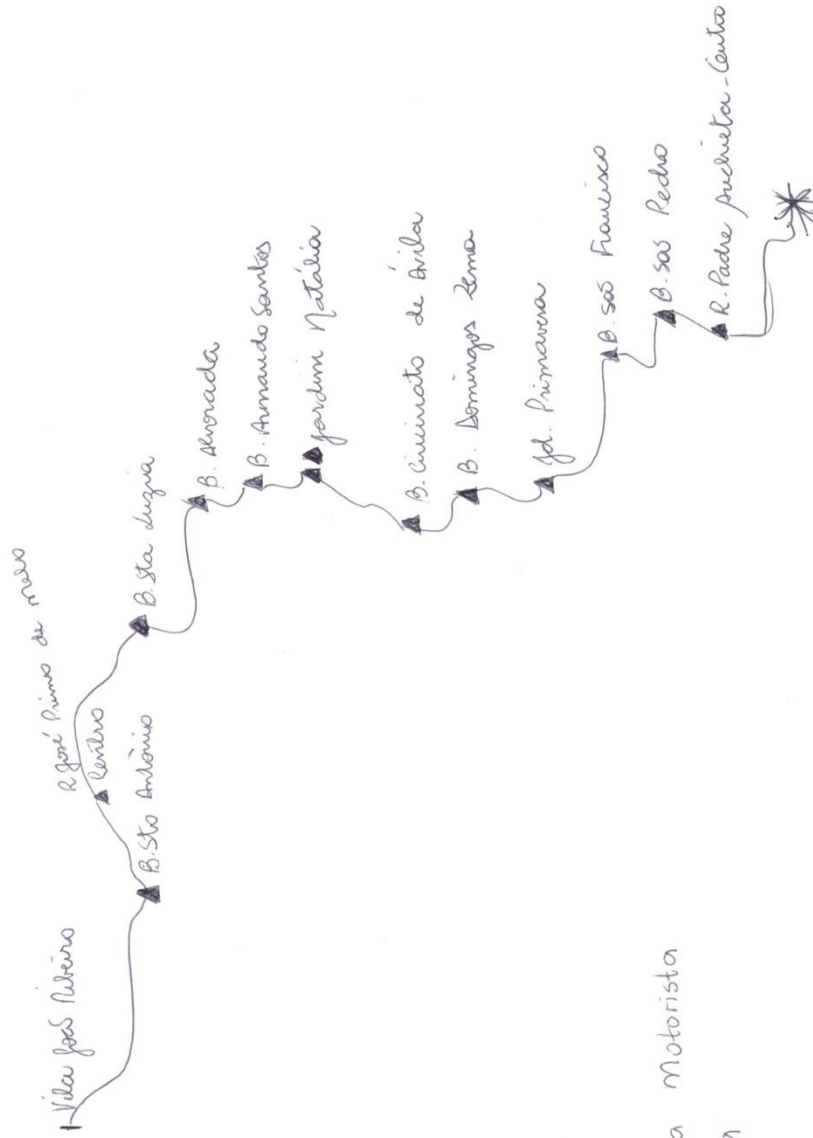 Vila João Ribeiro
B. Sto Antônio
R José Primo de Melo
Centro
B. Sta Luzia
B. Alvorada
B. Armando Santos
Jardim Natália
B. Cincinato de Ávila
B. Domingos Zema
Jd. Primavera
B. São Francisco
B. São Pedro
R. Padre Anchieta - Centro
a Motorista
a